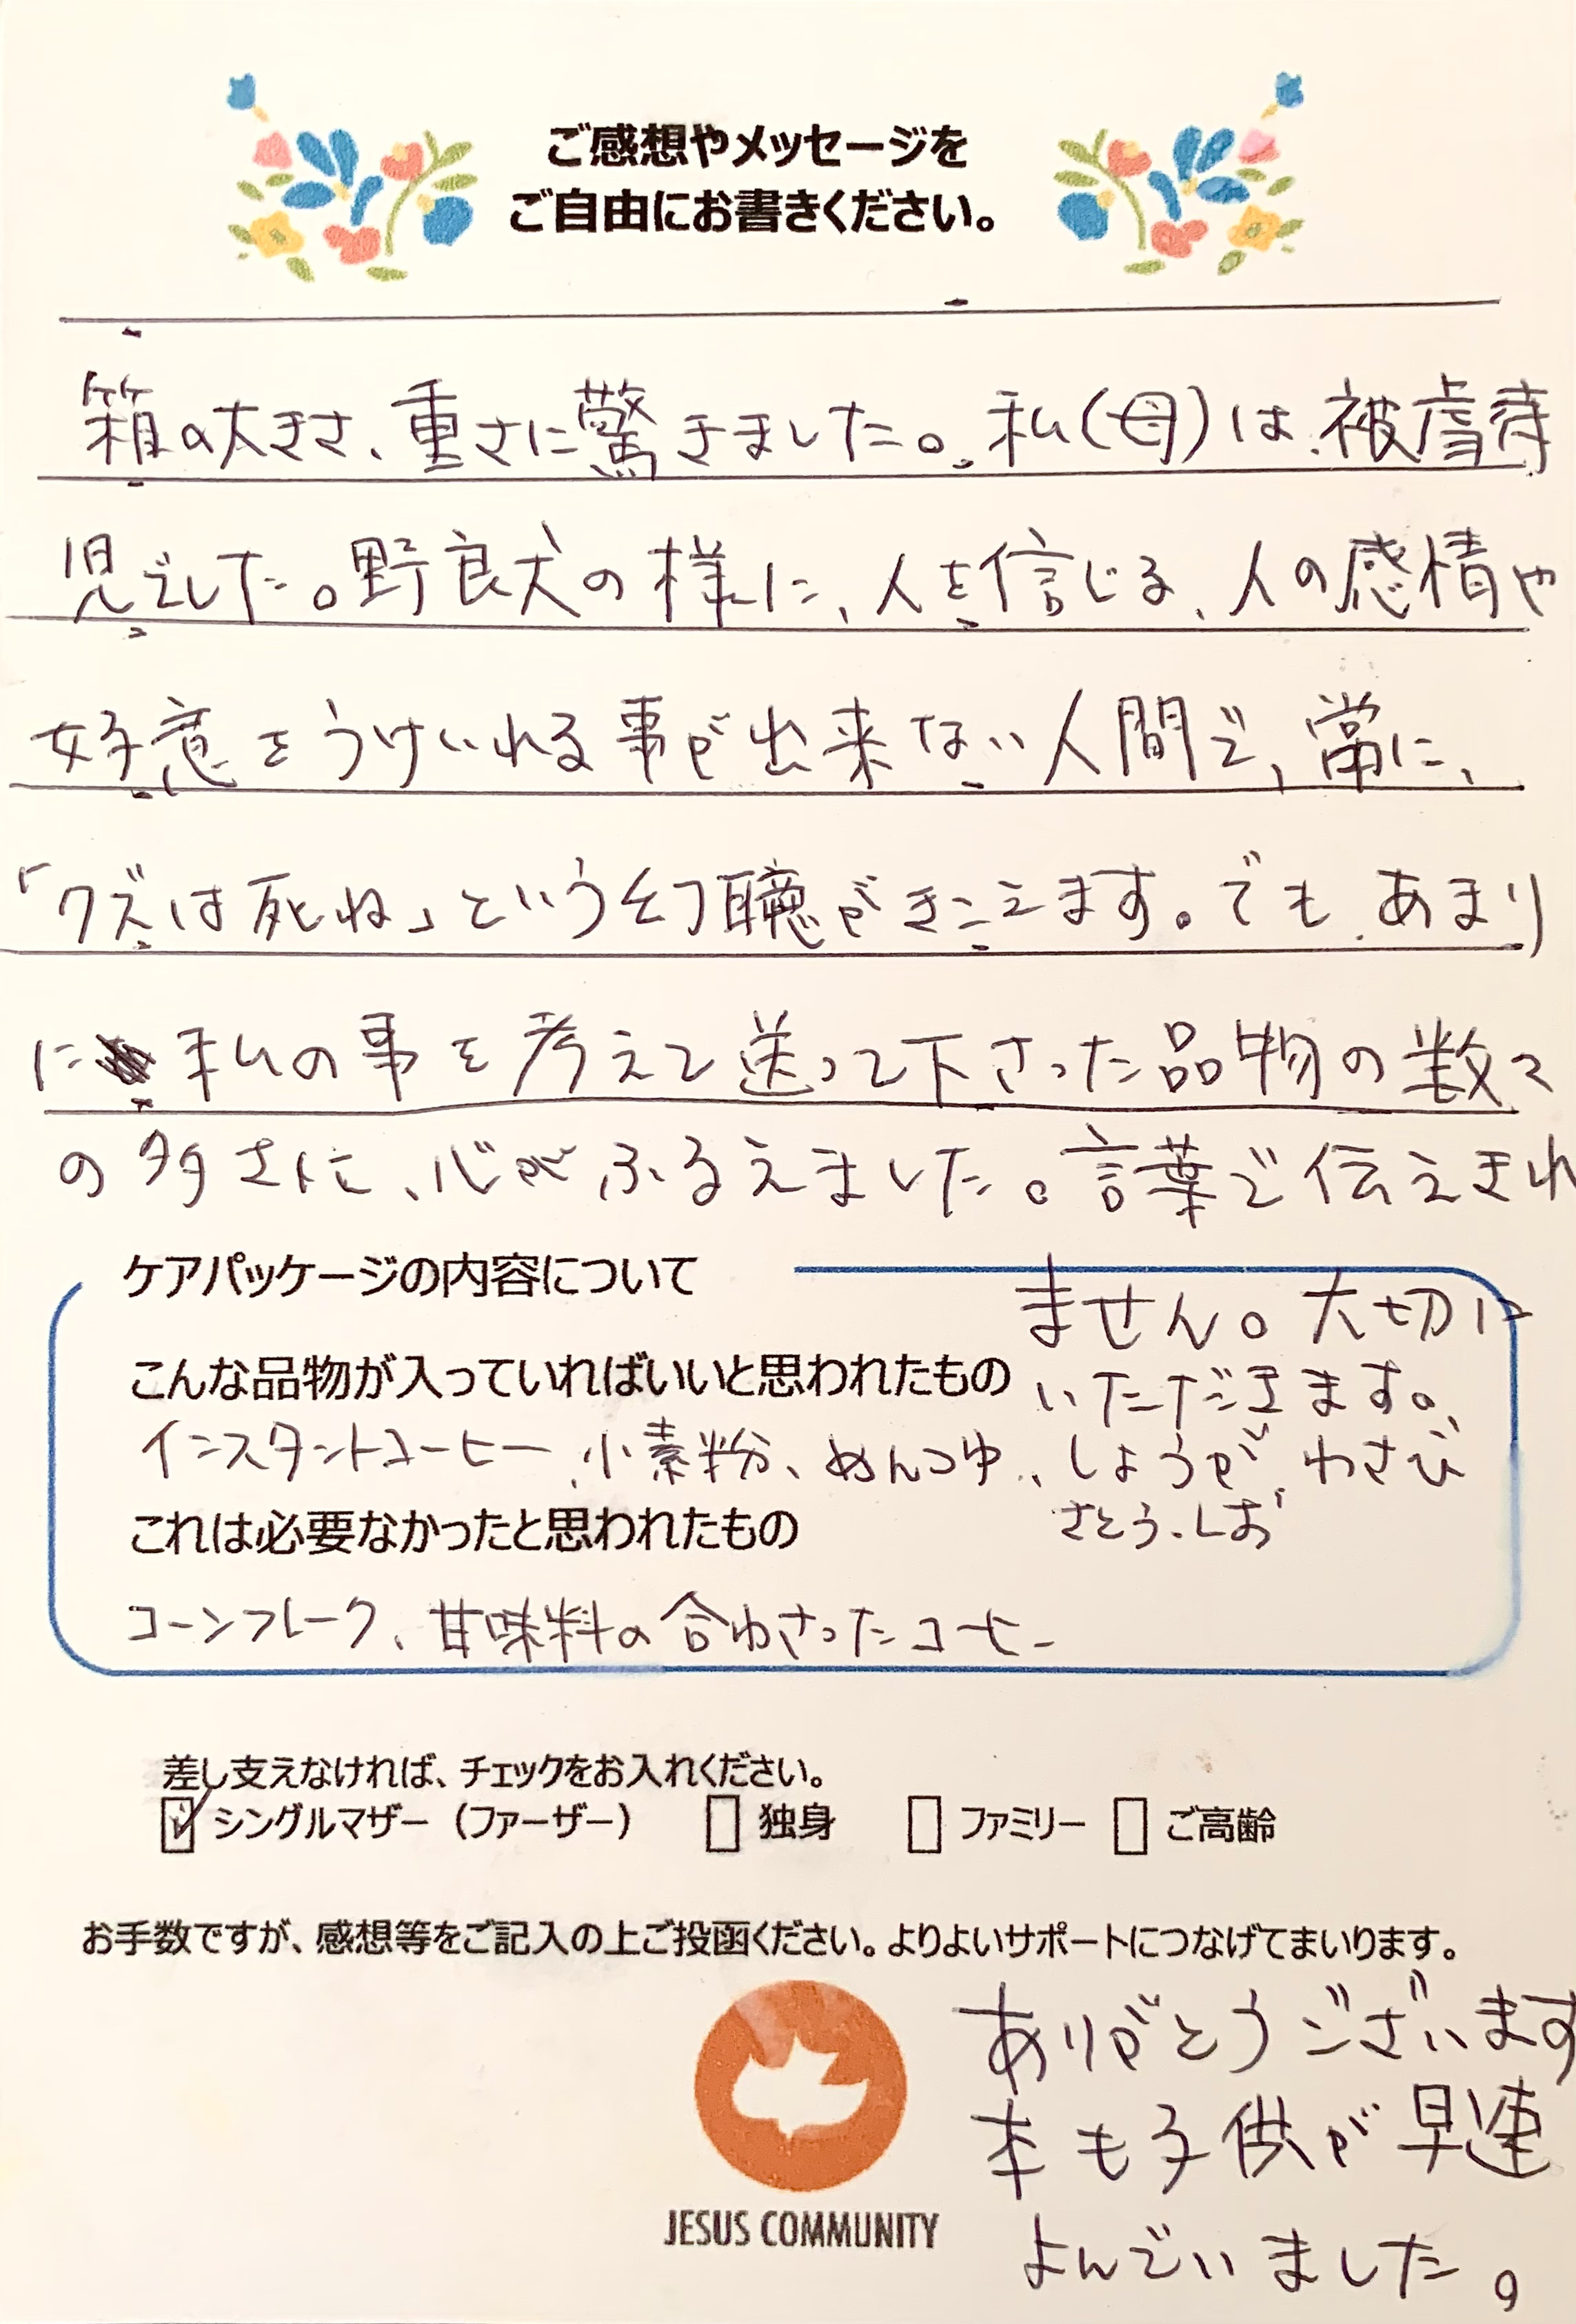 ご感想やメッセージを
ご自由にお書きください。
箱の大きさ、重さに驚きました。私(母)は、被虐待
児でした。野良犬の様に、人を信じる、人の感情や
好意をうけいれる事が出来ない人間で、常に、
「クズは死ね」という幻聴がきこえます。でも、あまり
に 私の事を考えて送って下さった品物の数々
の多さに、心がふるえました。言葉で伝えきれ
ません。大切に
いただきます。
ケアパッケージの内容について
こんな品物が入っていればいいと思われたもの
インスタントコーヒー、小素粉、めんつゆ、しょうが、わさび
さとう、しお
これは必要なかったと思われたもの
コーンフレーク、甘味料の合わさったコーヒー
差し支えなければ、チェックをお入れください。
シングルマザー(ファーザー) 独身 ファミリー ご高齢
お手数ですが、感想等をご記入の上ご投函ください。よりよいサポートにつなげてまいります。
JESUS COMMUNITY
ありがとうございます
本も子供が早速
よんでいました。